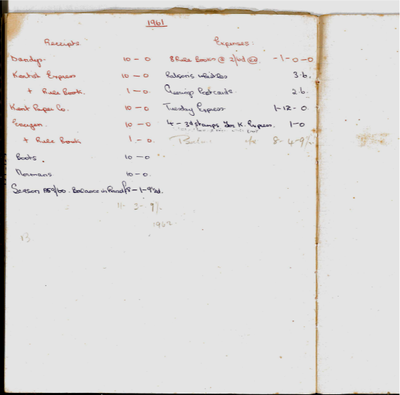 1961.
Receipts. Expenses.
Dandys 10 - 0 8 Rule Books @ 2/6d - 1 - 0 - 0
Kentish Express 10 - 0 whistles 3. 6.
+ Rule Book. 1 - 0. Postcards 2 6.
Kent Paper Co. 10 - 0 Tuesday Express 1 - 12 - 0
10 - 0. 4 - 3d stamps K. Express. 1 - 0
+ Rule Book 1. - 0. 8 - 4 - 9½
Boots. 10 - 0.
Normans 10 - 0.
Season Balance in Hand 8 - 1 - 9½d.
11 - 3 - 9½